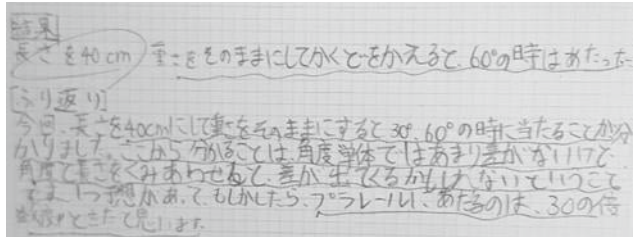 結果
長さを40cm 重さをそのままにしてかくどをかえると、60°の時はあたった
[ふり返り]
今回、長さを40cmにして重さをそのままにすると30°、60°の時に当たることが分
かりました。ここから分かることは、角度単体ではあまり差がないけど
角度と長さをくみあわせると、差が出てくるかもしれないということ
です。1つ予想があって、もしかしたら、プラレールに、あたるのは、30の倍
数の ときだと思います。